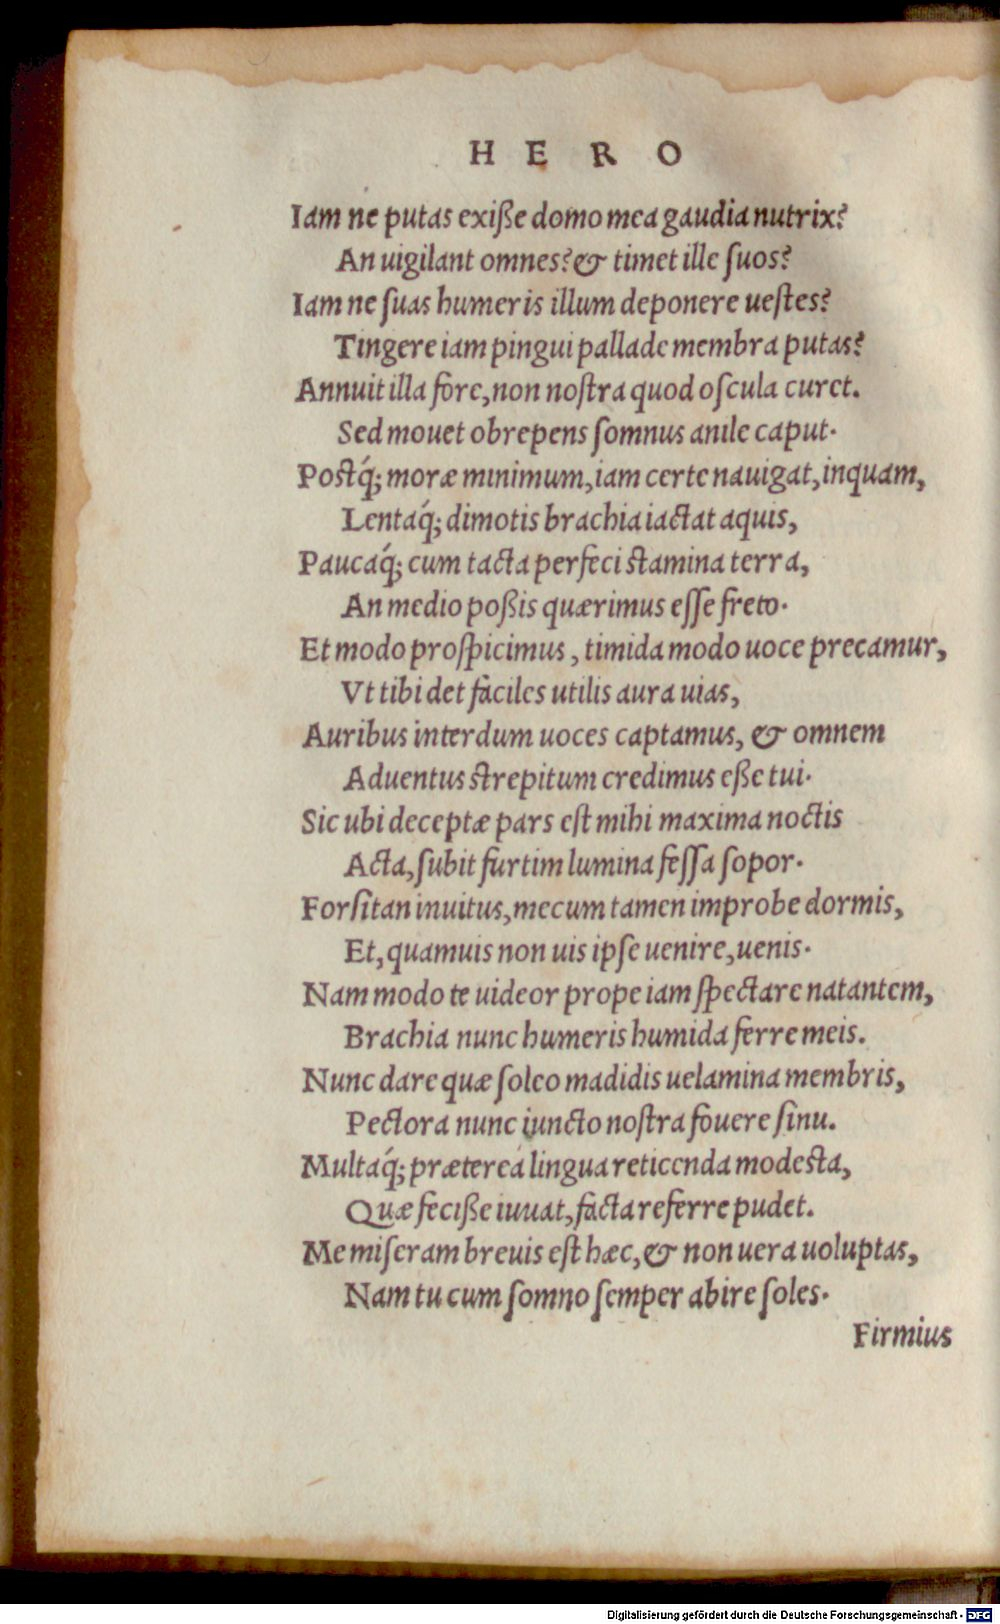 HERO
Iam ne putas exiße domo mea gaudia nutrix?
An uigilant omnes? & timet ille ſuos?
Iam ne ſuas humeris illum deponere ueſtes?
Tingere iam pingui pallade membra putas?
Annuit illa fore, non noſtra quod oſcula curet.
Sed mouet obrepens ſomnus anile caput.
Postq́; moræ minimum, iam certe nauigat, inquam,
Lentaq́; dimotis brachia iactat aquis,
Paucaq́; cum tacta perfeci stamina terra,
An medio poßis quærimus eſſe freto.
Et modo proſpicimus, timida modo uoce precamur,
Vt tibi det faciles utilis aura uias,
Auribus interdum uoces captamus, & omnem
Aduentus strepitum credimus eße tui.
Sic ubi deceptæ pars eſt mihi maxima noctis
Acta, ſubit furtim lumina feſſa ſopor.
Forſitan inuitus, mecum tamen improbe dormis,
Et, quamuis non uis ipſe uenire, uenis.
Nam modo te uideor prope iam ſpectare natantem,
Brachia nunc humeris humida ferre meis.
Nunc dare quæ ſoleo madidis uelamina membris,
Pectora nunc iuncto noſtra fouere ſinu.
Multaq́; prætereá lingua reticenda modesta,
Quæ feciße iuuat, facta referre pudet.
Me miſeram breuis eſt hæc, & non uera uoluptas,
Nam tu cum ſomno ſemper abire ſoles.
Firmius
Digitalisierung gefördert durch die Deutsche Forschungsgemeinschaft - DFG